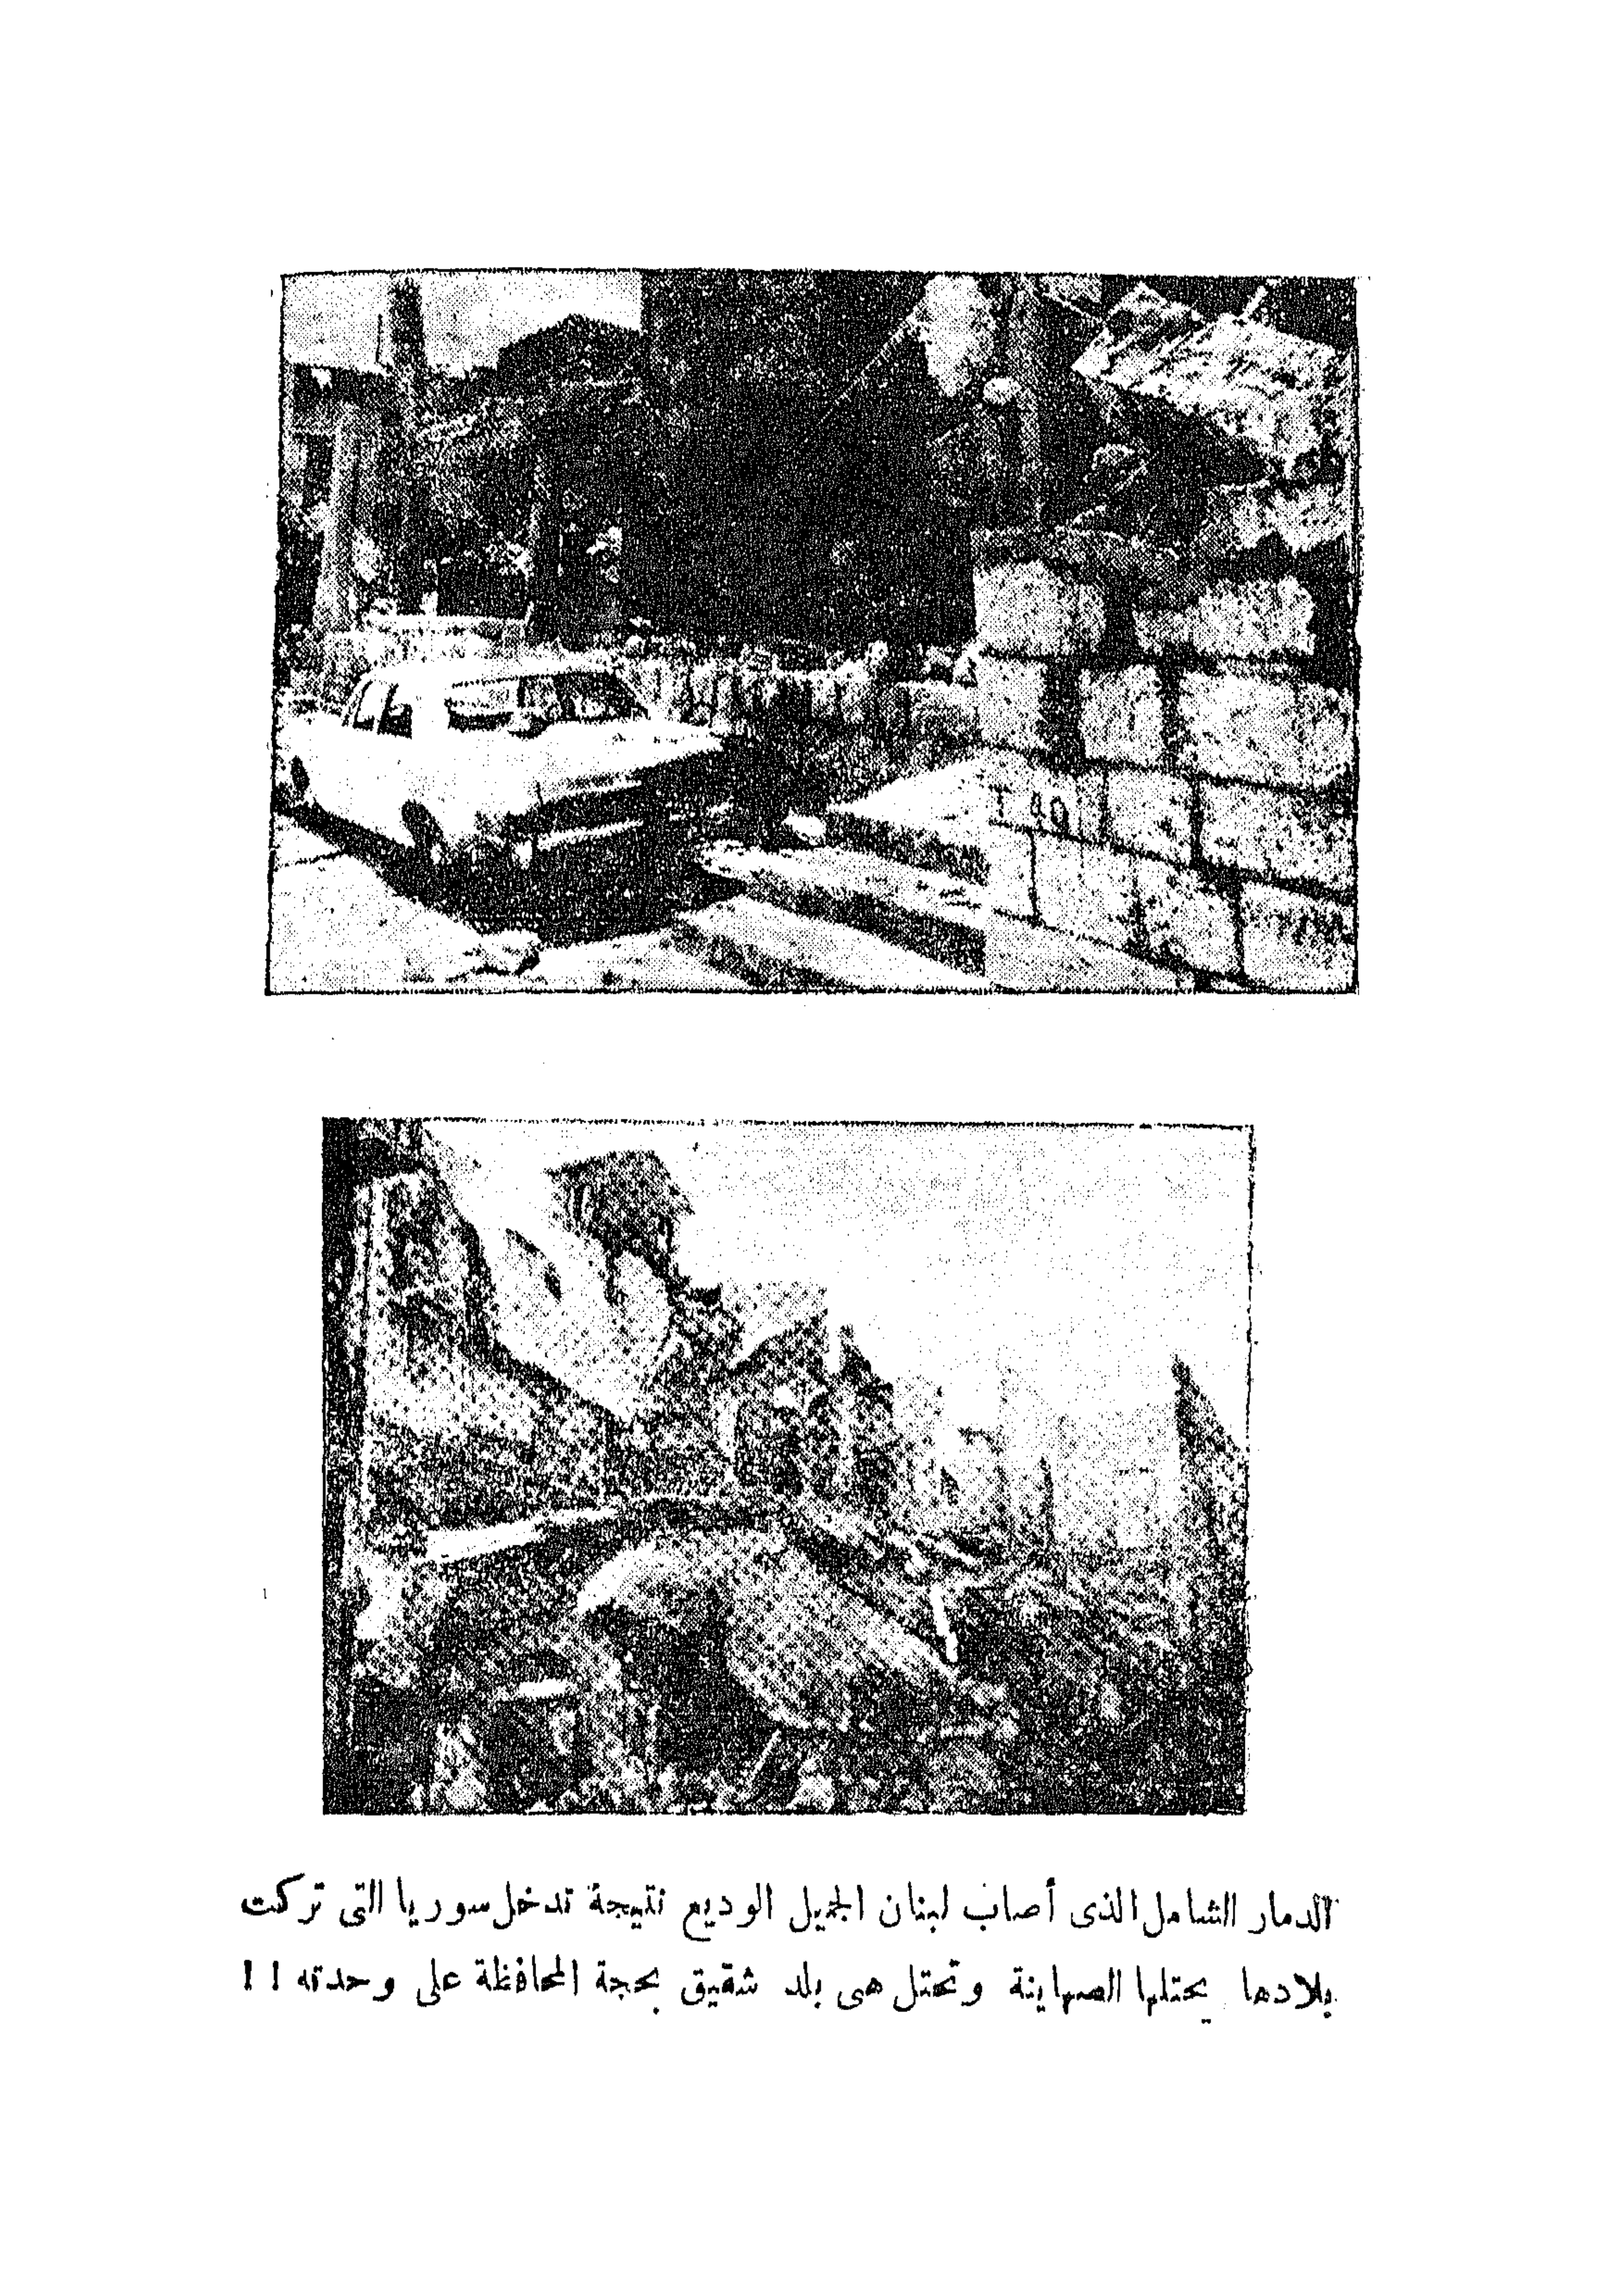 الدمار الشامل الذى أصاب لبنان الجميل الوديع نتيجة تدخل سوريا التى تركت
بلادها يحتلها الصهاينة وتحتل هى بلد شقيق بحجة المحافظة على وحدته ! !